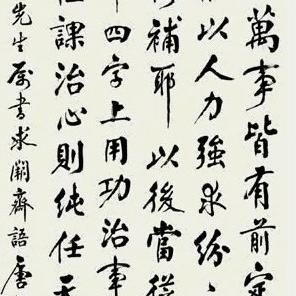 萬事皆有前定
以人力強求紛
補耶以後當從
四字上用功治事
課治心則純任天
先生屬書求闕齋語唐